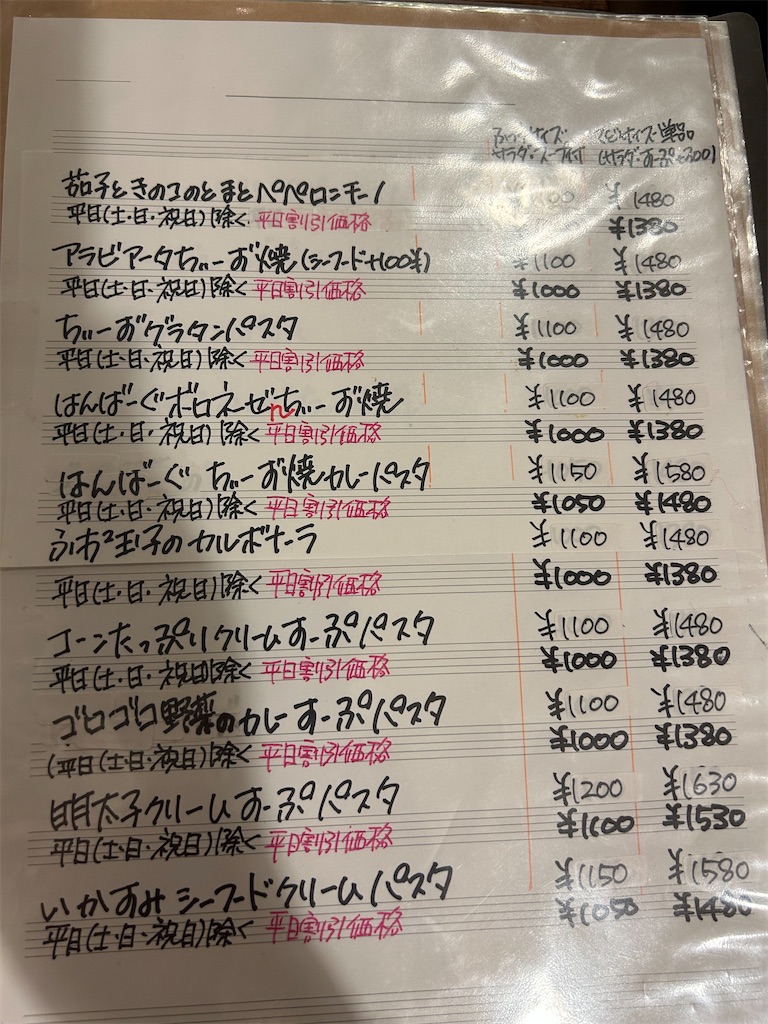 サイズ サイズ・単品
サラダ・スープ付 (サラダ・すーぷ
茄子ときのこのとまとペペロンチーノ ¥1480
平日(土・日・祝日)除く 平日割引価格 ¥1380
アラビアータちぃーず焼(シーフード+100¥) ¥1100 ¥1480
平日(土・日・祝日)除く 平日割引価格 ¥1000 ¥1380
ちぃーずグラタンパスタ ¥1100 ¥1480
平日(土・日・祝日)除く 平日割引価格 ¥1000 ¥1380
はんばーぐボロネーゼちぃーず焼 ¥1100 ¥1480
平日(土・日・祝日)除く 平日割引価格 ¥1000 ¥1380
はんばーぐ ちぃーず焼カレーパスタ ¥1150 ¥1580
平日(土・日・祝日)除く 平日割引価格 ¥1050 ¥1480
ふわ2玉子のカルボナーラ ¥1100 ¥1480
平日(土・日・祝日)除く 平日割引価格 ¥1000 ¥1380
コーンたっぷりクリームすーぷパスタ ¥1100 ¥1480
平日(土・日・祝日)除く 平日割引価格 ¥1000 ¥1380
ゴロゴロ野菜のカレーすーぷパスタ ¥1100 ¥1480
(平日(土・日・祝日)除く 平日割引価格 ¥1000 ¥1380
明太子クリームすーぷパスタ ¥1200 ¥1630
平日(土・日・祝日)除く 平日割引価格 ¥1100 ¥1530
いかすみシーフードクリームパスタ ¥1150 ¥1580
平日(土・日・祝日)除く 平日割引価格 ¥1050 ¥1480